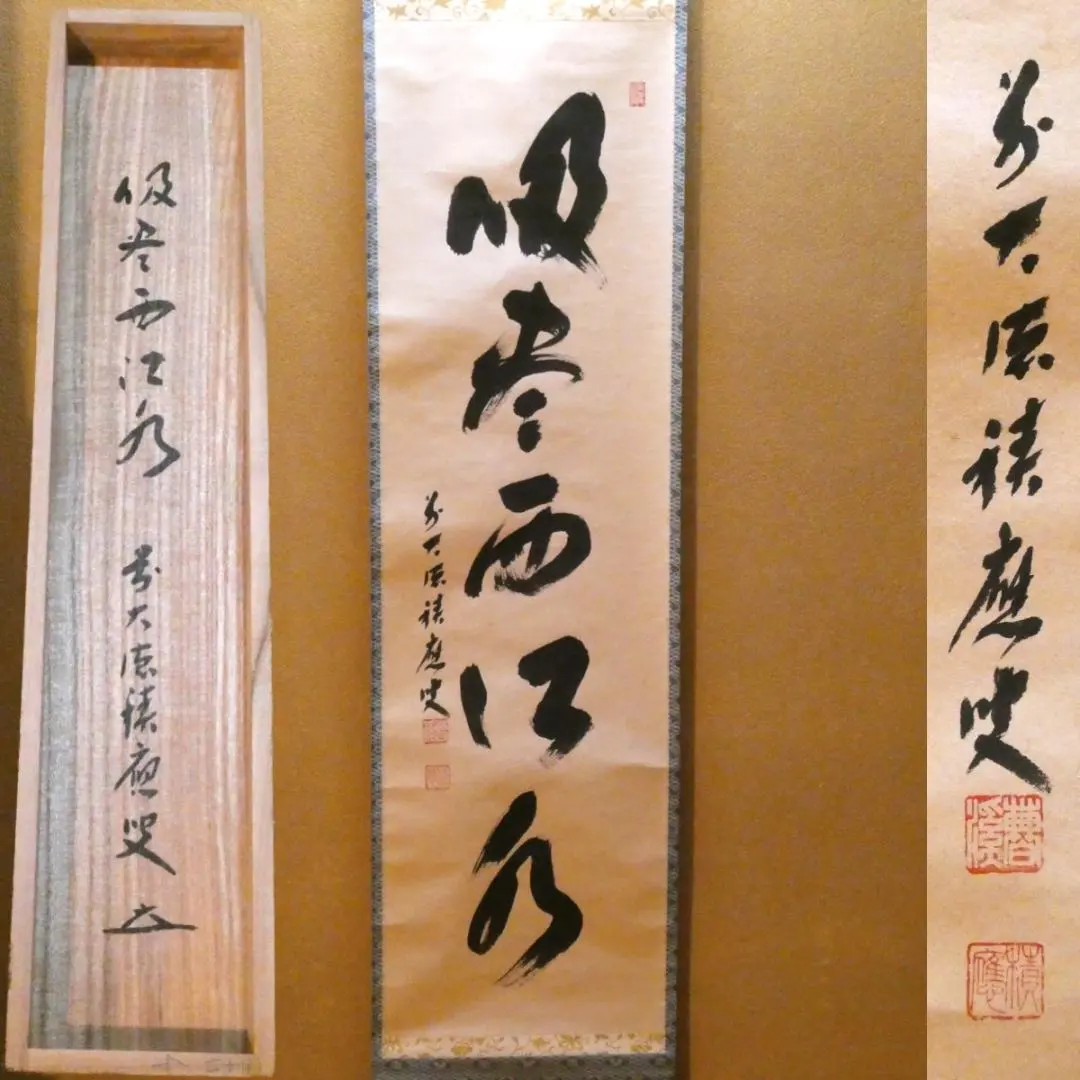 吸尽西江水
前大徳積應叟
吸尽西江水
前大徳積應叟
前大徳積應叟
積應